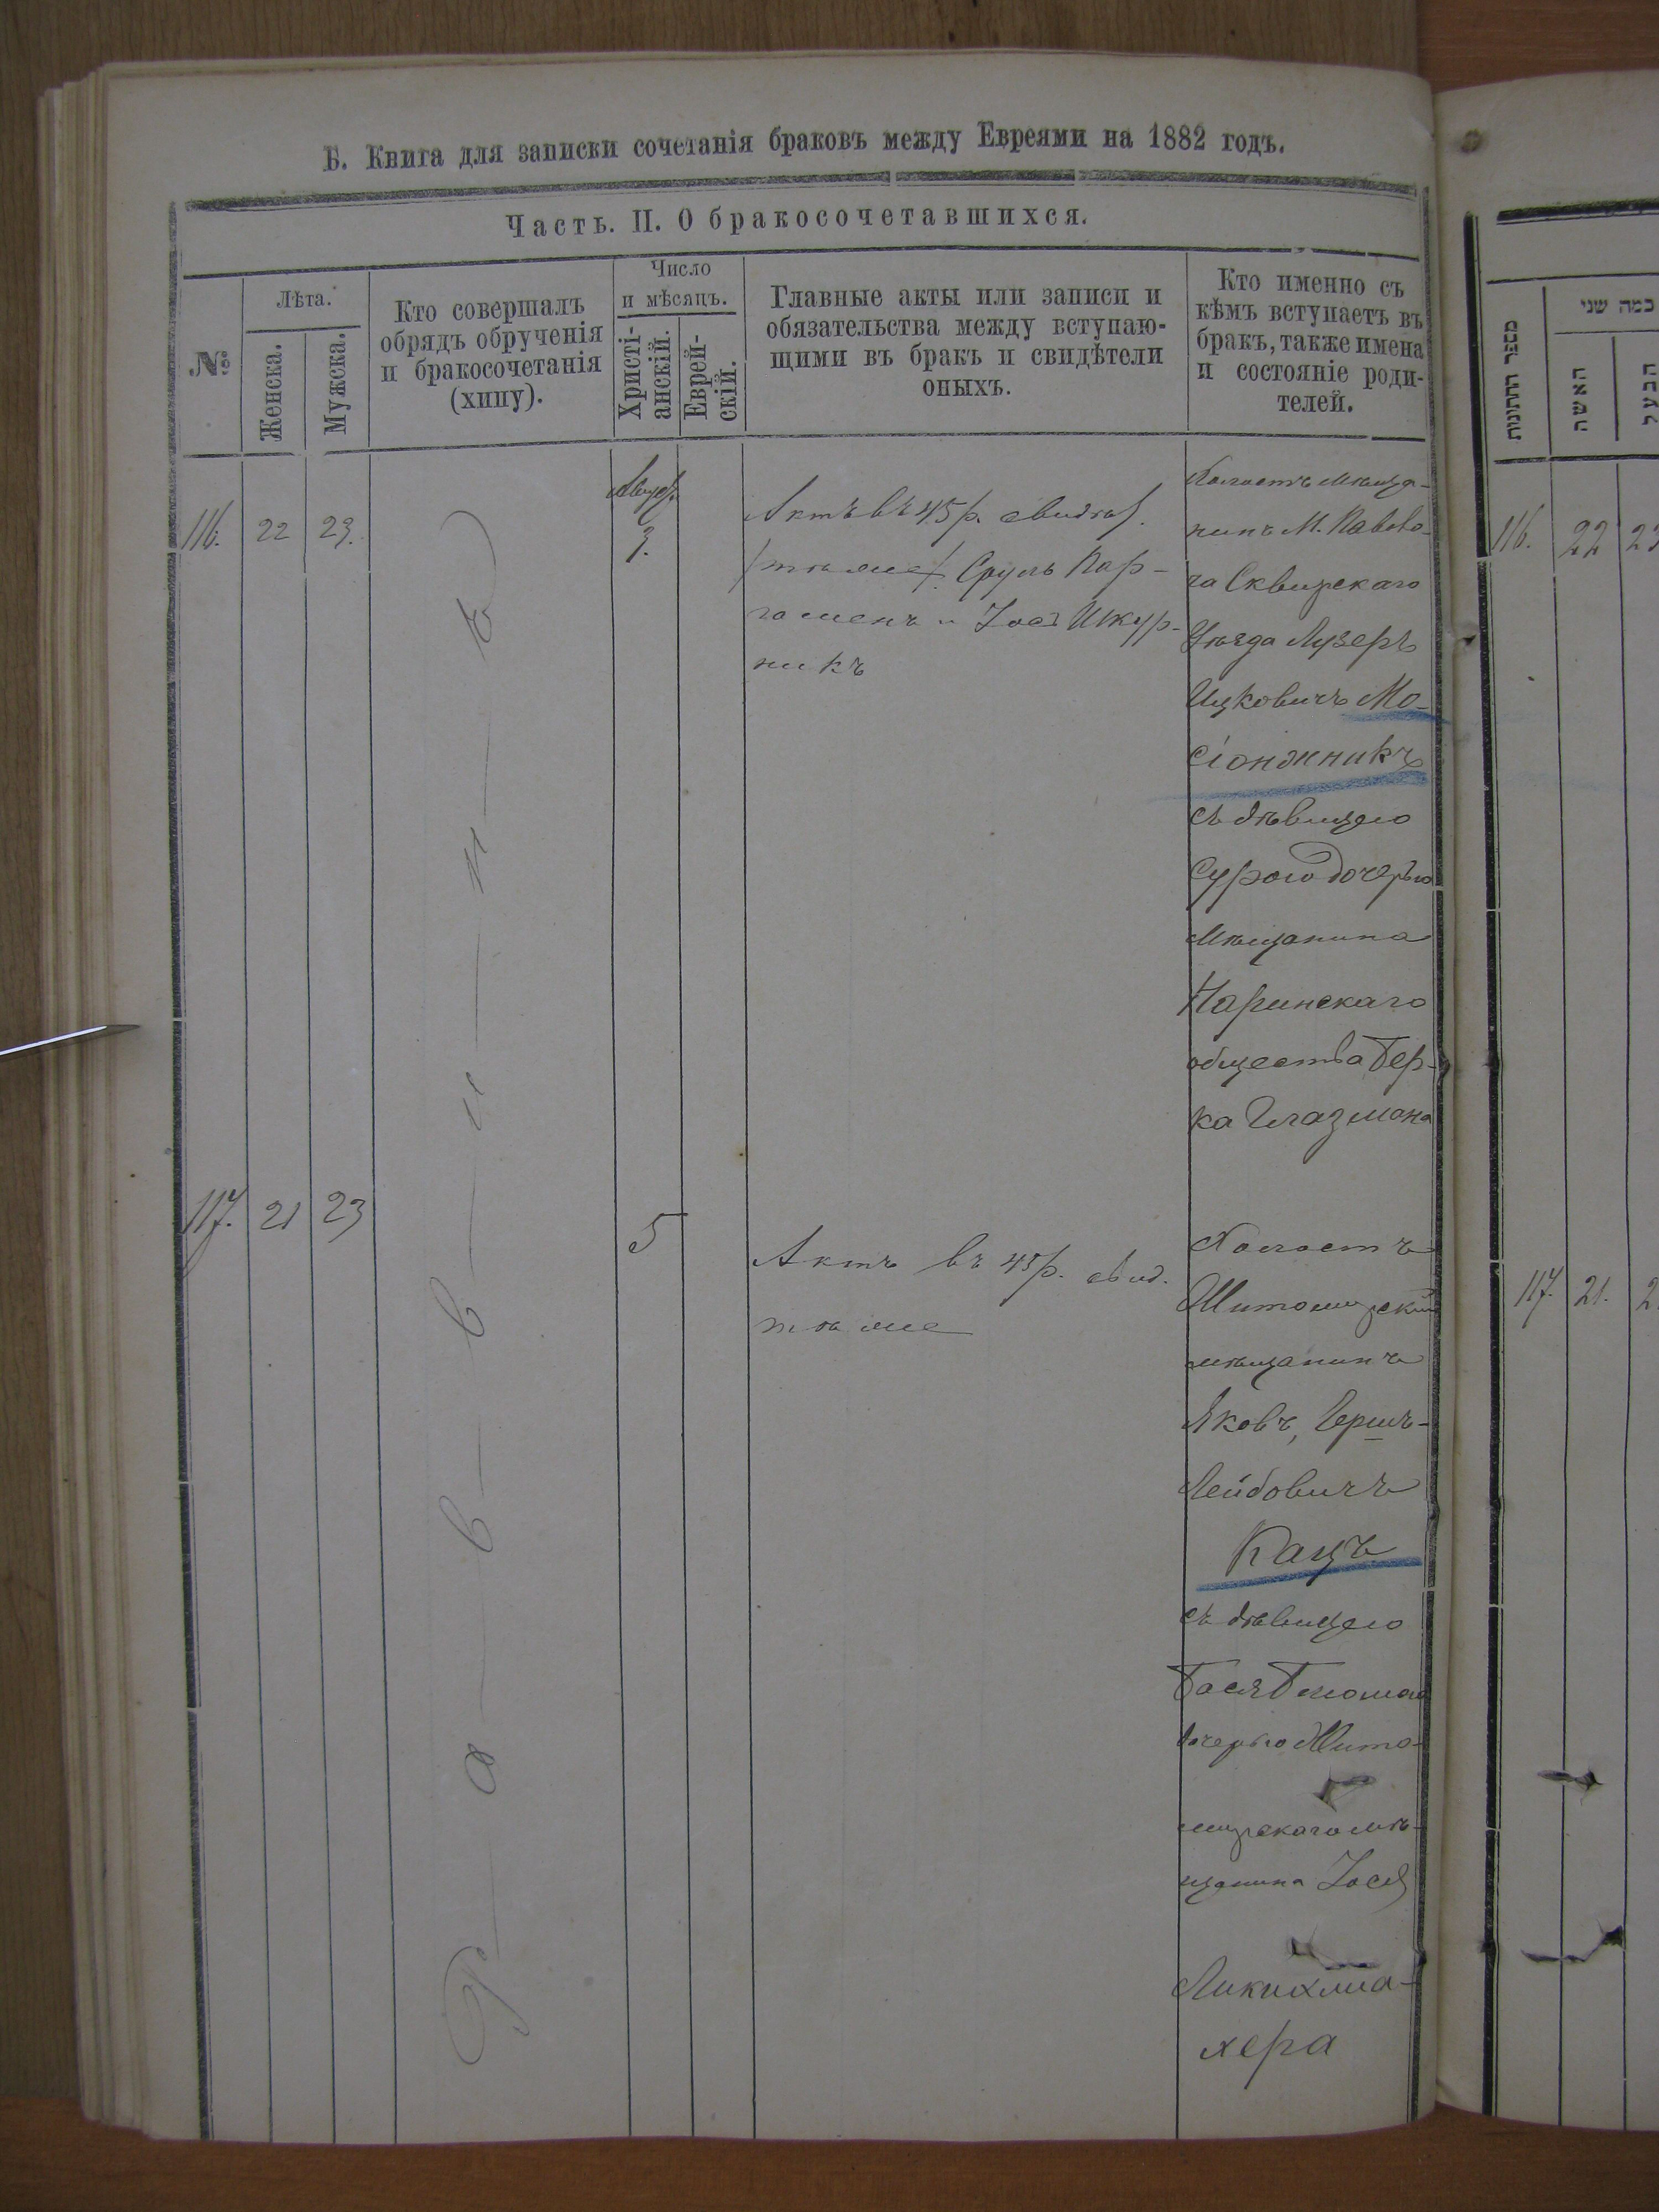 Б. Книга для записки сочетанія браковъ между Евреями на 1882 годъ.
Часть. II. О бракосочетавшихся.
№
Лѣта.
Женска.
Мужска.
Кто совершалъ
обрядъ обрученія
и бракосочетанія
(хипу).
Число
и мѣсяцъ.
Христі-
анскій.
Еврей-
скій.
Главные акты или записи и
обязательства между вступаю-
щими въ бракъ и свидѣтели
оныхъ.
Кто именно съ
кѣмъ вступаетъ въ
бракъ, также имена
и состояніе роди-
телей.
116.
22
23.
Раввинъ
3.
Актъ въ 45 р. свидѣт.
тѣ же Сруль Пар-
гаменъ и Іось Шкур-
никъ
Холостъ мѣща-
нинъ М. Паволо-
ча Сквирскаго
Уѣзда Лузеръ
Ицковичъ Мо-
сіонжникъ
съ дѣвицею
Сурою дочерью
мѣщанина
Наринскаго
общества Бер-
ка Глазмана
117.
21
23
5
Актъ въ 45 р. свид.
тѣ же
Холостъ
Житомирскій
мѣщанинъ
Яковъ, Гершъ-
Лейбовичъ
Кацъ
съ дѣвицею
Бася
дочерью Жито-
мирскаго мѣ-
щанина Іося
Ликихма-
хера
מספר החתונות
כמה שני
האשה
הבעל
116.
22
23
117.
21.